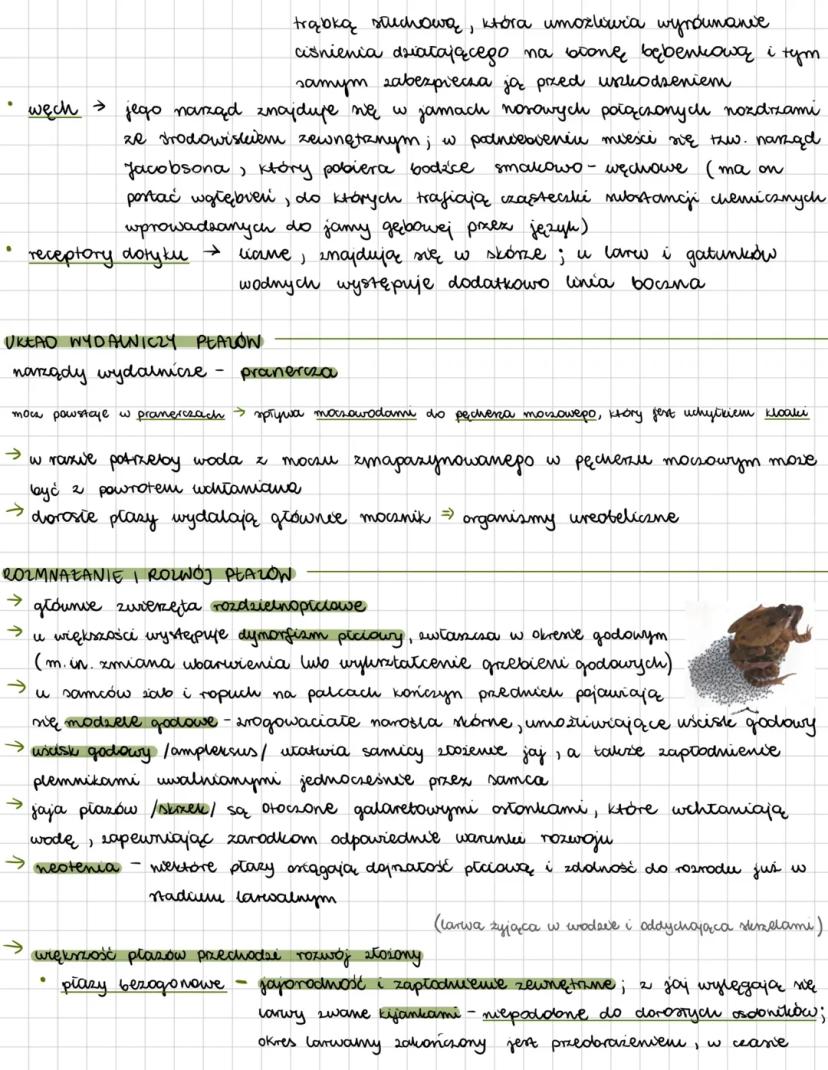 trąbką słuchową, która umożliwia wyrównanie
ciśnienia działającego na błonę bębenkową i tym
samym zabezpiecza ją przed uszkodzeniem
• węch → jego narząd znajduje się w jamach nosowych połączonych nozdrzami
ze środowiskiem zewnętrznym; w podniebieniu mieści się tzw. narząd
Jacobsona, który pobiera bodźce smakowo-węchowe (ma on
postać wgłębień, do których trafiają cząsteczki substancji chemicznych
wprowadzanych do jamy gębowej przez język)
• receptory dotyku → liczne, znajdują się w skórze; u larw i gatunków
wodnych występuje dodatkowo linia boczna
UKŁAD WYDALNICZY PŁAZÓW
narządy wydalnicze - pranercza
mocz powstaje w pranerczach → spływa moczowodami do pęcherza moczowego, który jest uchyłkiem kloaki
→ w razie potrzeby woda z moczu zmagazynowanego w pęcherzu moczowym może
być z powrotem wchłaniana
→ dorosłe płazy wydalają głównie mocznik ⇒ organizmy ureoteliczne
ROZMNAŻANIE I ROZWÓJ PŁAZÓW
→ głównie zwierzęta rozdzielnopłciowe
→ u większości występuje dymorfizm płciowy, zwłaszcza w okresie godowym
(m.in. zmiana ubarwienia lub wykształcenie grzebieni godowych)
→ u samców żab i ropuch na palcach kończyn przednich pojawiają
się modzele godowe - zrogowaciałe narośla skórne, umożliwiające uścisk godowy
→ uścisk godowy /ampleksus/ ułatwia samicy złożenie jaj, a także zapłodnienie
plemnikami uwalnianymi jednocześnie przez samca
→ jaja płazów /skrzek/ są otoczone galaretowymi osłonkami, które wchłaniają
wodę, zapewniając zarodkom odpowiednie warunki rozwoju
→ neotenia - niektóre płazy osiągają dojrzałość płciową i zdolność do rozrodu już w
stadium larwalnym
(larwa żyjąca w wodzie i oddychająca skrzelami)
→ większość płazów przechodzi rozwój złożony
• płazy bezogonowe - jajorodność i zapłodnienie zewnętrzne; z jaj wylęgają się
larwy zwane kijankami - niepodobne do dorosłych osobników;
okres larwalny zakończony jest przeobrażeniem, w czasie